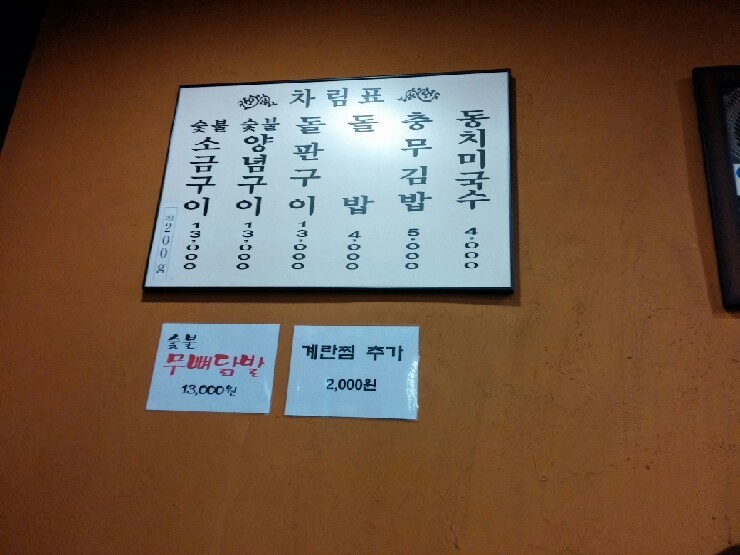 차림표
숯불 소금구이 13,000
숯불 양념구이 13,000
돌판구이 13,000
돌밥 4,000
충무김밥 5,000
동치미국수 4,000
200g
숯불
무뼈닭발
13,000원
계란찜 추가
2,000원